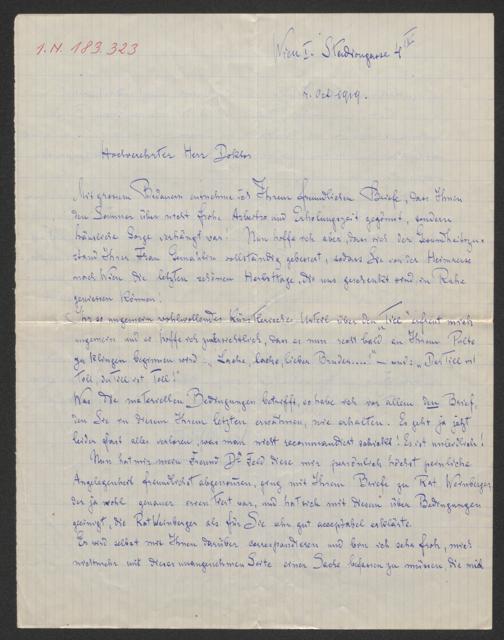 I.N. 183.323
Wien I. Stadiongasse 4
Oct 1919.
Hochverehrter Herr Doktor
Mit grossem Bedauern entnehme ich Ihrem freundlichen Briefe, dass Ihnen
den Sommer über nicht frohe Arbeits und Erholungszeit gegönnt, sondern
häusliche Sorge verhängt war! Nun hoffe ich aber, dass sich der Gesundheitszu-
stand Ihrer Frau Gemahlin vollständig gebessert, sodass Sie vor der Heimreise
nach Wien die letzten schönen Herbsttage, die uns geschenkt sind, in Ruhe
geniessen können!
Ihr so ungemein wohlwollendes künstlerisches Urteil über den "Till" erfreut mich
ungemein und es hoffe ich zuversichtlich, dass es nun recht bald an Ihrem Pulte
zu klingen beginnen wird „Lache, lache, lieber Bruder....!" – und: „Der Till ist
toll, du Till ist toll!"
Was die materiellen Bedingungen betrifft, so habe ich vor allem den Brief,
den Sie in diesem Ihrem letzten erwähnen, nie erhalten. Es geht ja jetzt
leider fast alles verloren, was man nicht recommandiert schickt! Es ist unleidlich!
Nun hat mir mein Freund Dr Feld diese mir persönlich höchst peinliche
Angelegenheit freundlichst abgenommen, ging mit Ihrem Briefe zu Rat Weinberger,
der ja wohl genauer orientiert war, und hat sich mit diesem über Bedingungen
geeinigt, die Rat Weinberger als für Sie sehr gut acceptabel erklärte.
Er wird selbst mit Ihnen darüber correspondieren und bin ich sehr froh, mich
nicht mehr mit dieser unangenehmen Seite einer Sache befassen zu müssen, die mir